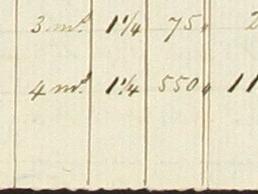 3 md 1¼ 75 2
4 md 1¼ 550 11